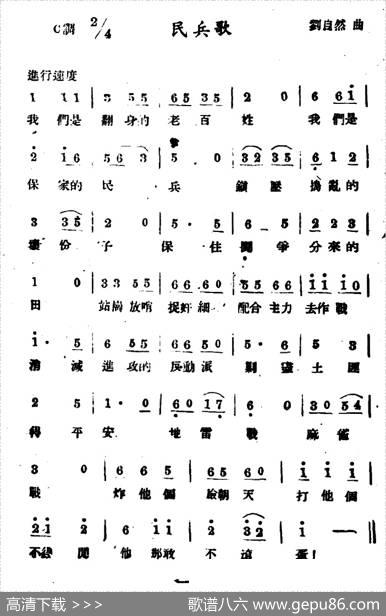 C調 2/4 民兵歌 劉自然 曲
進行速度
1 1 1 | 3· 5 5 | 6 5 3 5 | 2 0 | 6 6 i |
我們是 翻身的 老百姓 我們是
2 · i 6 | 5 6 3 | 5 · 0 | 3 2 3 5 | 6 1 2 |
保家的民兵 鎮壓搗亂的
3 3 5 | 2 0 | 5 · 5 | 6 5 | 2 2 3 |
壞份子 保住鬬爭分來的
1 0 | 3 3 5 5 | 6 6 6 0 | 5 5 6 6 | i i i 0 |
田 站崗放哨 捉奸細 配合主力 去作戰
i · 5 | 6 5 5 | 6 6 5 0 | 5 · 6 | 5 3 |
消滅進攻的反動派 剿盡土匪
2 5 | 1 · 0 | 6 0 1 7 | 6 0 | 3 0 5 4 |
得平安 地雷戰 麻雀
3 0 | 6 6 5 | 6 5 6 0 | i i i |
戰 炸他個 臉朝天 打他個
2 i 2 | 6 i i | 2 3 2 | i — ‖
他那敢不滾蛋!
高清下载 >>> 歌谱八六 www.gepu86.com